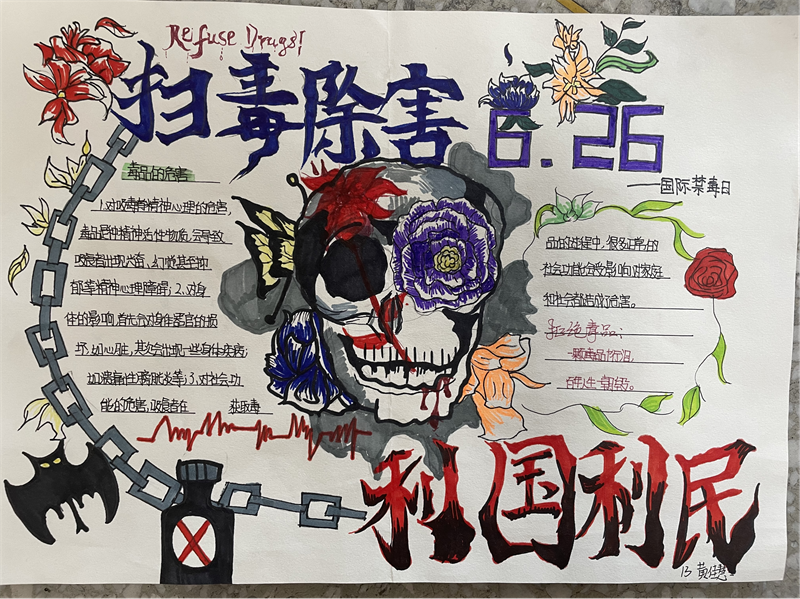 Refuse Drugs!
扫毒除害
6.26
——国际禁毒日
毒品的危害
1.对吸毒者精神心理的危害,
毒品是种精神活性物质,会导致
吸毒者出现兴奋、幻觉甚至抑
郁等精神心理障碍;2、对身
体的影响,首先会对身体器官的损
坏,如心脏,其次会出现一些身体疾病;
如果毒性膀胱炎等;3.对社会功
能的危害,吸毒者在 获取毒
品的过程中,很多正常的
社会功能会受影响对家庭
和社会都造成危害。
拒绝毒品:
一颗毒品付汩
百年人生一朝毁。
利国利民
13 黄佳慧